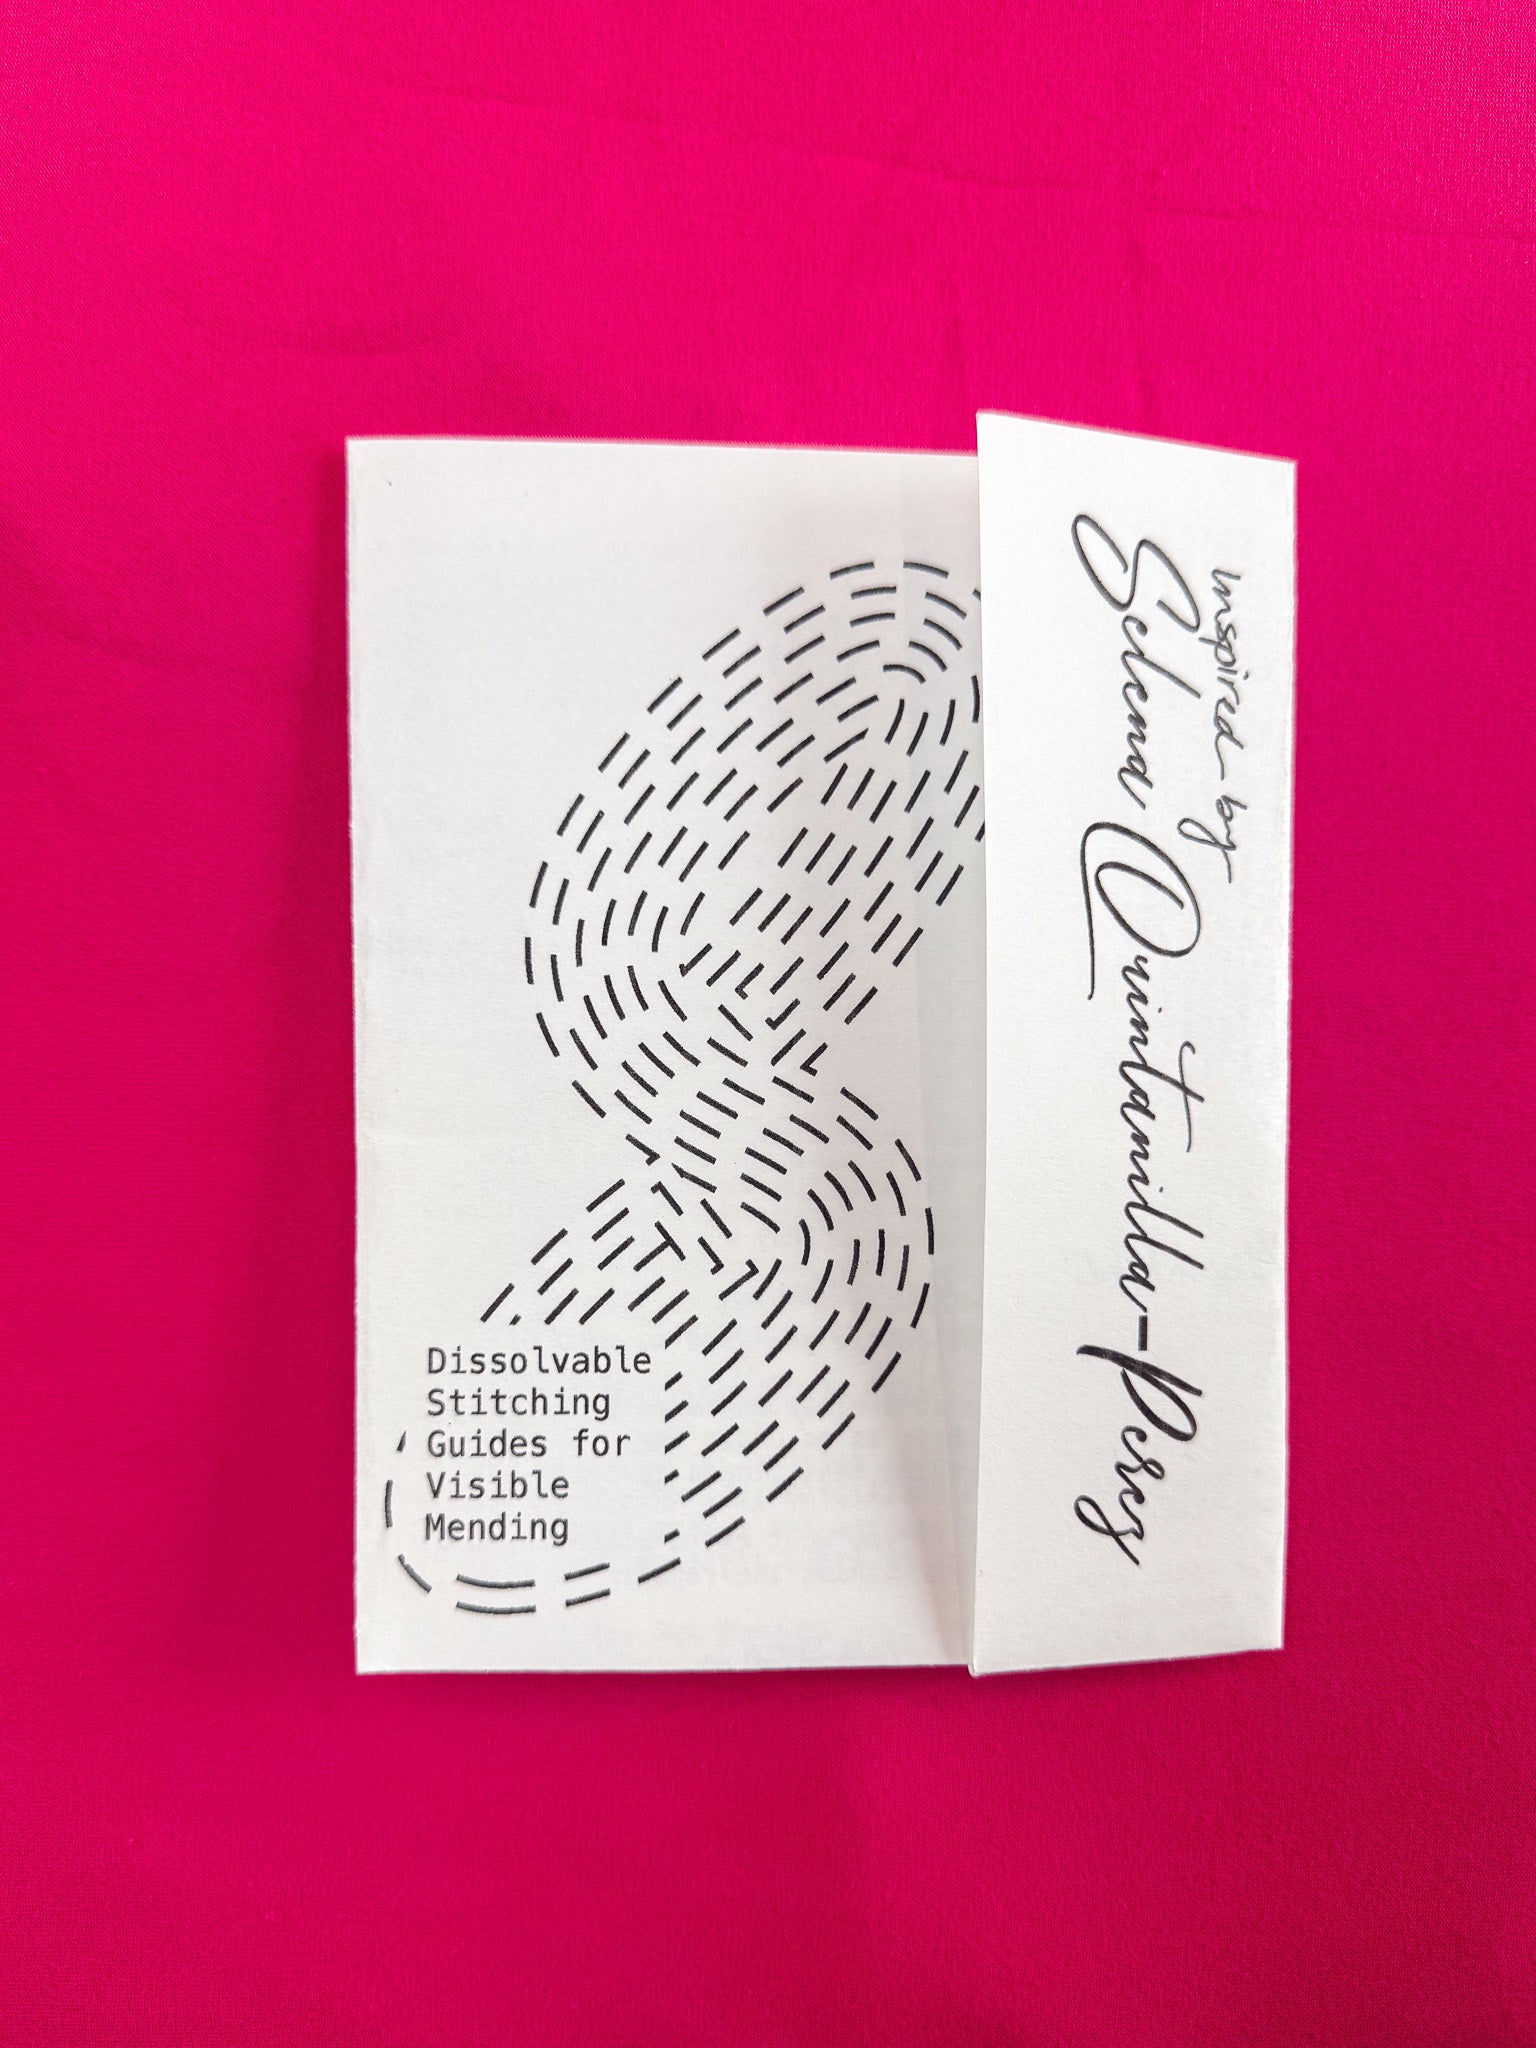 Dissolvable
Stitching
Guides for
Visible
Mending
inspired by
Selena Quintanilla-Perez